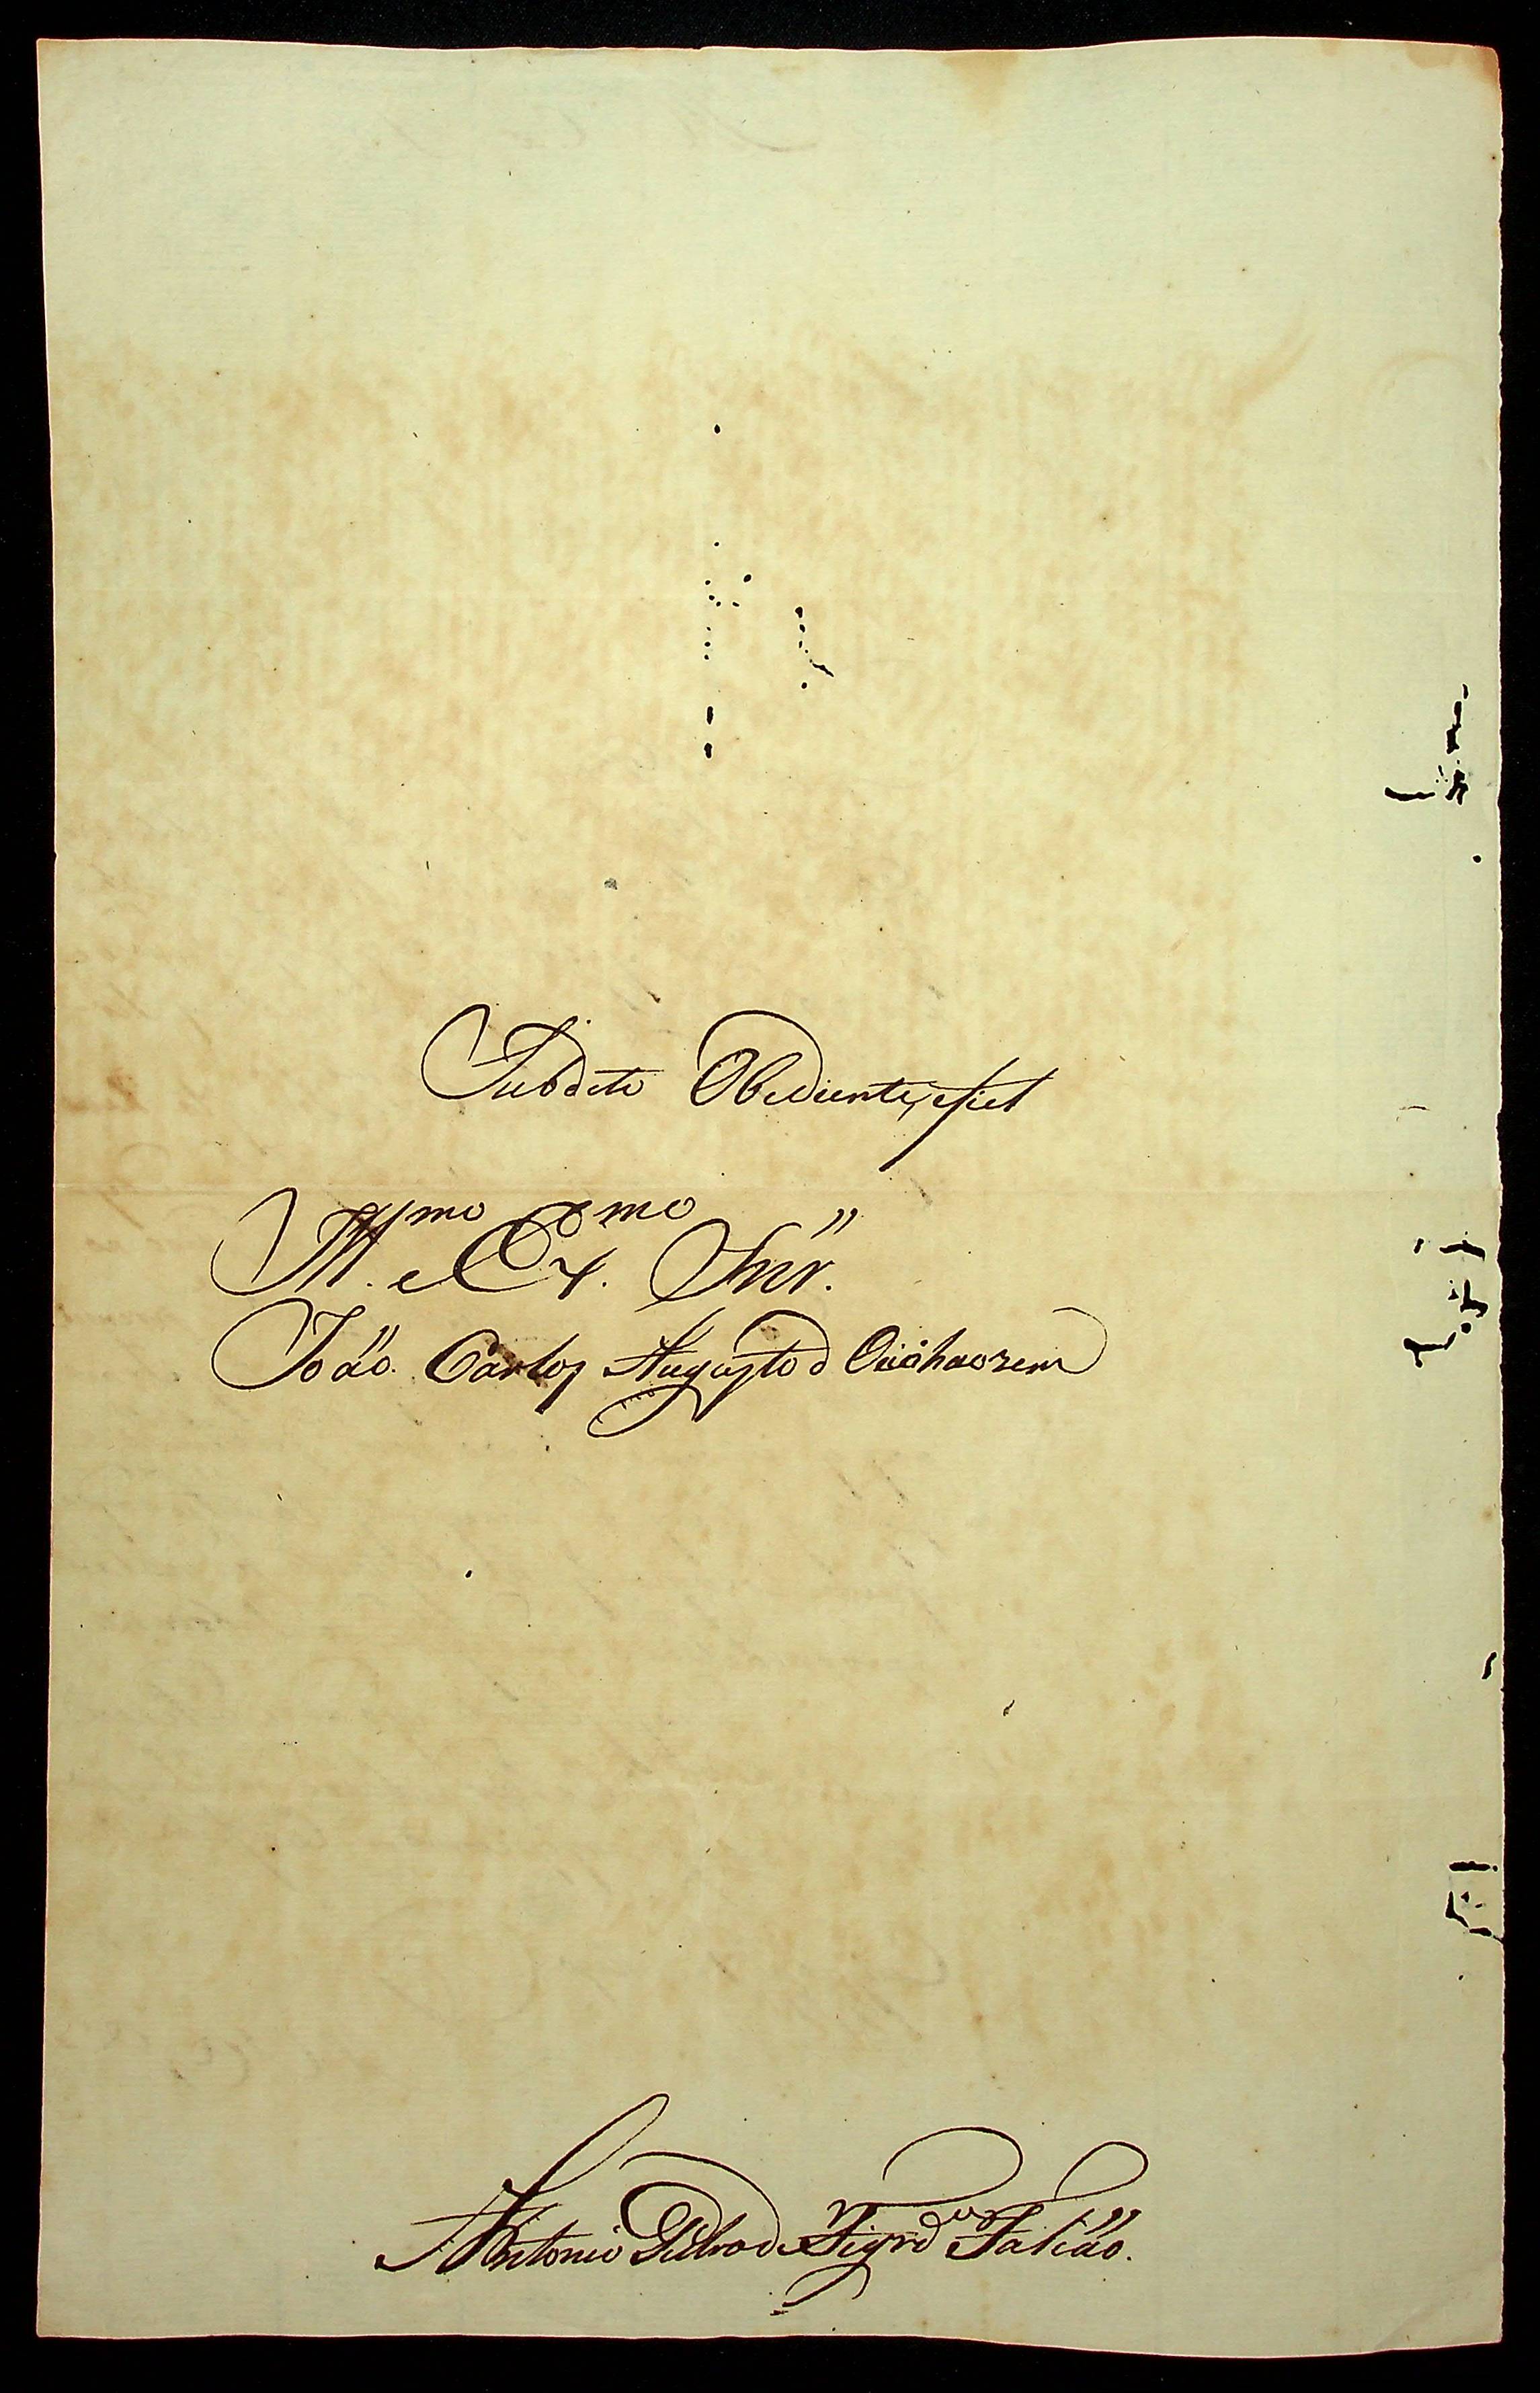 Subdito Obediente, e fiel
Ill.mo e Ex.mo Snr.
João Carlos Augusto d'Oeinhaozem
Antonio Pedro de Figrd.o Falcão.